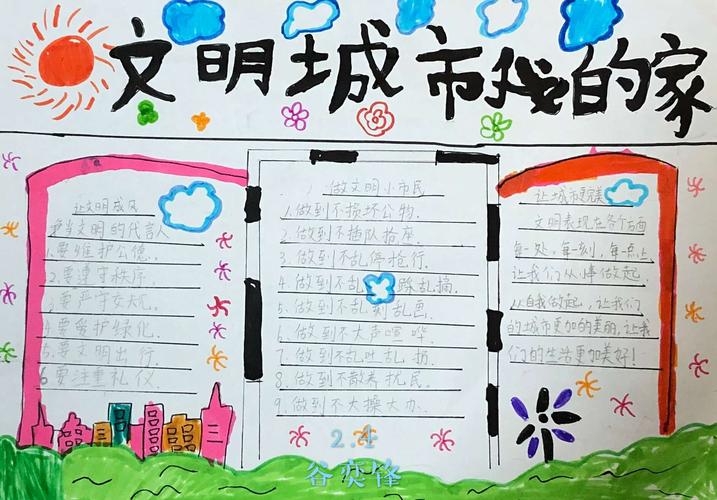 文明城市我的家
让文明成风
争当文明的代言人
1.要维护公德.
2.要遵守秩序.
3.要严守
4.要爱护绿化.
5.要文明出行.
6要注重礼仪.
做文明小市民
1.做到不损坏公物.
2.做到不插队抢座.
3.做到不乱停抢行.
4.做到不乱踩乱摘.
5.做到不乱刻乱画.
6.做到不大声喧哗.
7.做到不乱吐乱扔.
8.做到不散养扰民.
9.做到不大操大办.
让城市更完美
文明表现在各个方面
每一处,每一刻,每一点上
让我们从事做起,
从自我做起,让我们
的城市更加的美丽,让我
们的生活更加美好!
2.4
谷奕锋